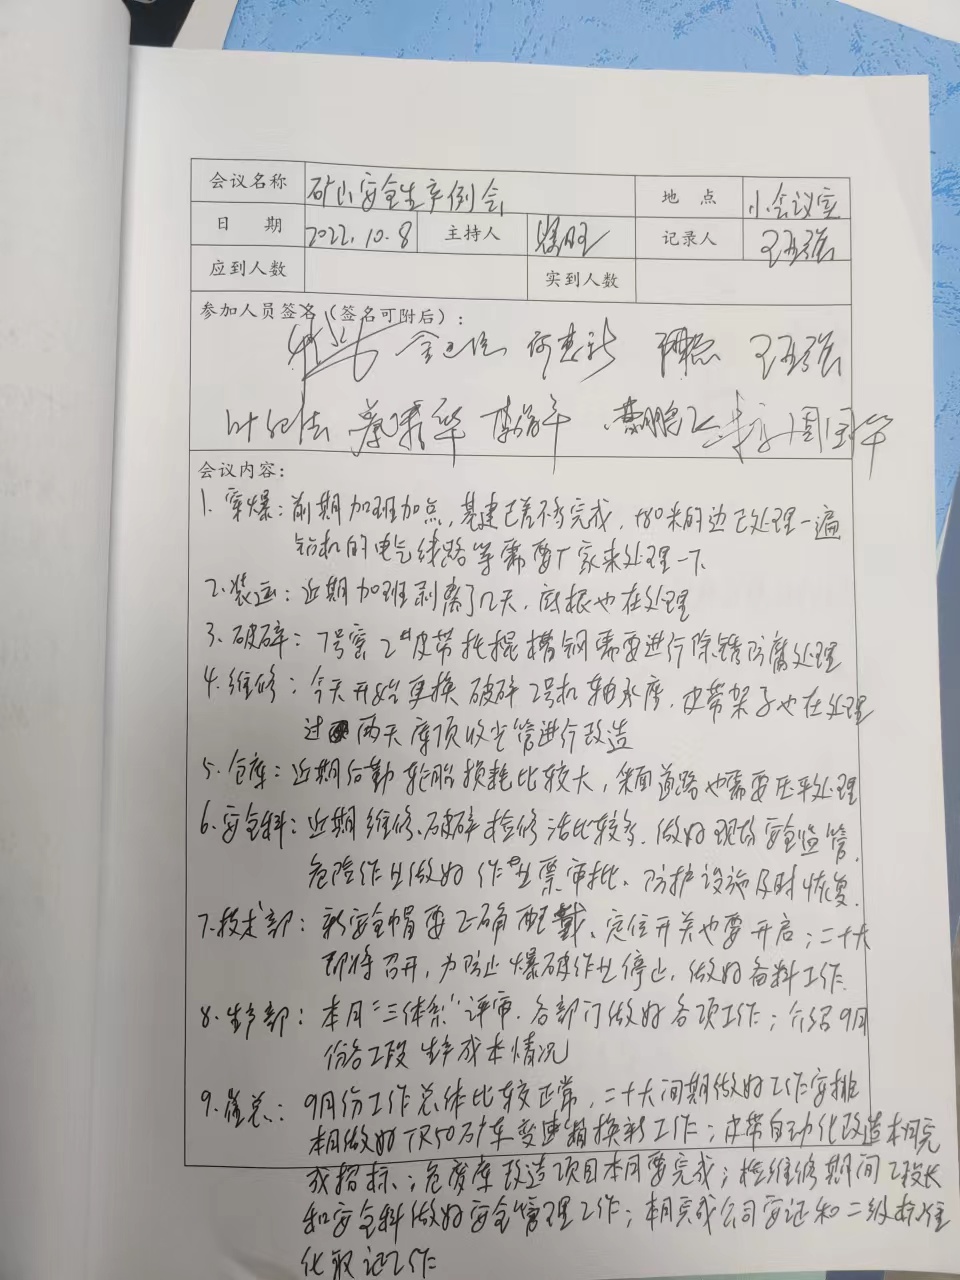 会议名称 矿山安全生产例会 地点 小会议室
日期 2022.10.8 主持人 记录人 王五强
应到人数 实到人数
参加人员签名（签名可附后）：
何惠新 王五强
蔡 华 周国华
会议内容：
1. 穿爆：前期加班加点，基建已差不多完成，+80米的边已处理一遍
钻机的电气线路等需要厂家来处理一下
2. 装运：近期加班剥离了几天，底根也在处理
3. 破碎：1号窑2#皮带托辊槽钢需要进行除锈防腐处理
4. 维修：今天开始更换破碎2号机轴承座，皮带架子也在处理
过两天库顶收尘管进行改造
5. 仓库：近期后勤轮胎损耗比较大，采面道路也需要压平处理
6. 安全科：近期维修、破碎检修活比较多，做好现场安全监管，
危险作业做好作业票审批、防护设施及时恢复。
7. 技术部：新安全帽要正确配戴、定位开关也要开启；二十大
即将召开，为防止爆破作业停止，做好备料工作.
8. 生产部：本月“三体系”评审，各部门做好各项工作；介绍9月
份各工段生产成本情况
9. 总：9月份工作总体比较正常，二十大间期做好工作安排
本月做好TR50矿车变速箱换新工作；皮带自动化改造本月完
成招标；危废库改造项目本月要完成；检维修期间工段长
和安全科做好安全管理工作；本月完成公司安证和二级标准
化取证工作